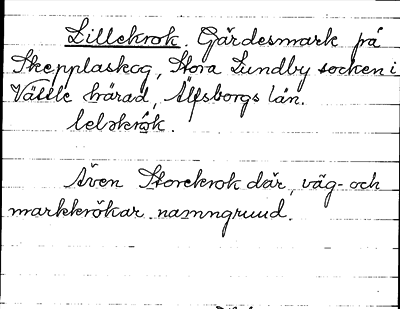 Lillekrok. Gärdesmark på
Skepplaskog, Stora Lundby socken i
Vättle härad, Älfsborgs län.
leləkrök.
Även Storekrok där, väg- och
markkrökar namngrund.